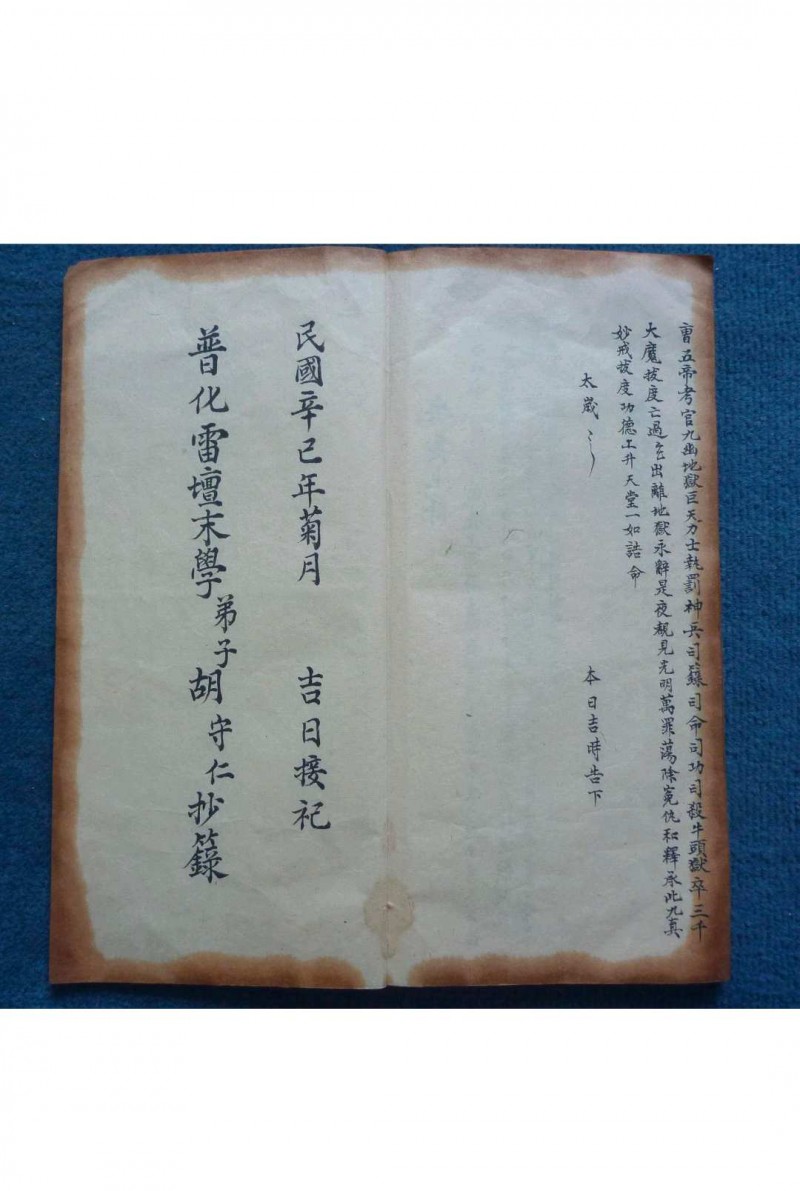 曺五帝考官九幽地獄巨天力士執罰神兵司籙司命司功司殺牛頭獄卒三千
大魔拔度亡過乞出離地獄永辭是夜覩見光明萬罪蕩除寃仇和釋承此九真
妙戒拔度功德上升天堂一如誥命
太歲
本日吉時告下
民國辛巳年菊月 吉日接祀
普化雷壇末學弟子胡守仁抄籙